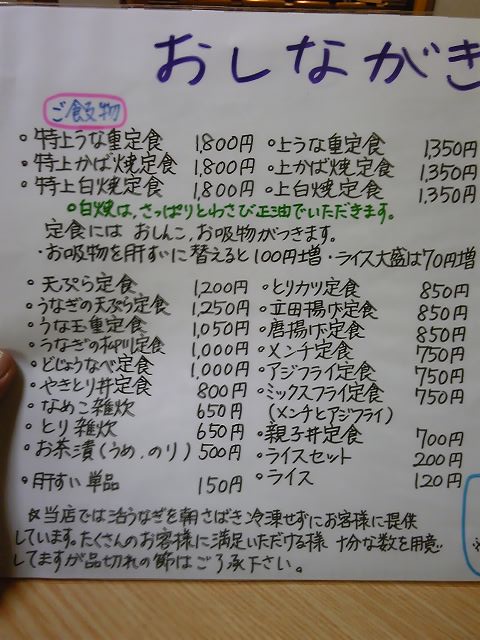 おしながき
ご飯物
○特上うな重定食 1,800円 ○上うな重定食 1,350円
○特上かば焼定食 1,800円 ○上かば焼定食 1,350円
○特上白焼定食 1,800円 ○上白焼定食 1,350円
○白焼は、さっぱりとわさび正油でいただきます。
定食には おしんこ、お吸物がつきます。
・お吸物を肝すいに替えると100円増・ライス大盛は70円増
○天ぷら定食 1,200円 ○とりカツ定食 850円
○うなぎの天ぷら定食 1,250円 ○立田揚げ定食 850円
○うな玉重定食 1,050円 ○唐揚げ定食 850円
○うなぎの柳川定食 1,000円 ○メンチ定食 750円
○どじょうなべ定食 1,000円 ○アジフライ定食 750円
○やきとり丼定食 800円 ○ミックスフライ定食 750円
○なめこ雑炊 650円 (メンチとアジフライ)
○とり雑炊 650円 ○親子丼定食 700円
○お茶漬(うめ、のり) 500円 ○ライスセット 200円
○肝すい 単品 150円 ○ライス 120円
☆当店では活うなぎを朝さばき冷凍せずにお客様に提供
しています。たくさんのお客様に満足いただける様 十分な数を用意
してますが品切れの節はご了承下さい。